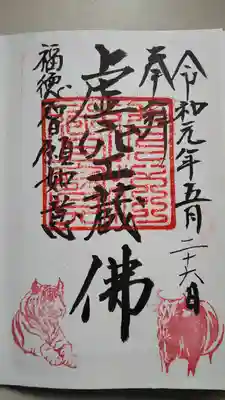 令和元年五月二十六日
奉拜
虚空蔵佛
福徳智願如意